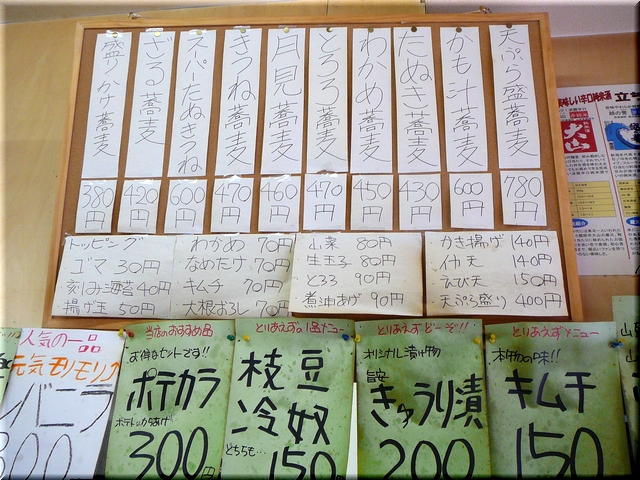 天ぷら盛蕎麦
780円
かも汁蕎麦
600円
たぬき蕎麦
430円
わかめ蕎麦
450円
とろろ蕎麦
470円
月見蕎麦
460円
きつね蕎麦
470円
スーパーたぬきつね
600円
ざる蕎麦
420円
盛りかけ蕎麦
380円
トッピング
ゴマ 30円
刻み海苔 40円
揚げ玉 50円
わかめ 70円
なめたけ 70円
キムチ 70円
大根おろし 70円
山菜 80円
生玉子 80円
とろろ 90円
煮油あげ 90円
かき揚げ 140円
イカ天 140円
えび天 150円
天ぷら盛り 400円
人気の一品
元気モリモリ
バニラ
当店のおすすめ品
お得なセットです!!
ポテカラ
300円
とりあえずの1品メニュー
枝豆
冷奴
どちらも…
150円
とりあえずどーぞ!!
オリジナル漬け物
旨安
きゅうり漬
200
とりあえずメニュー
本物の味!!
キムチ
150